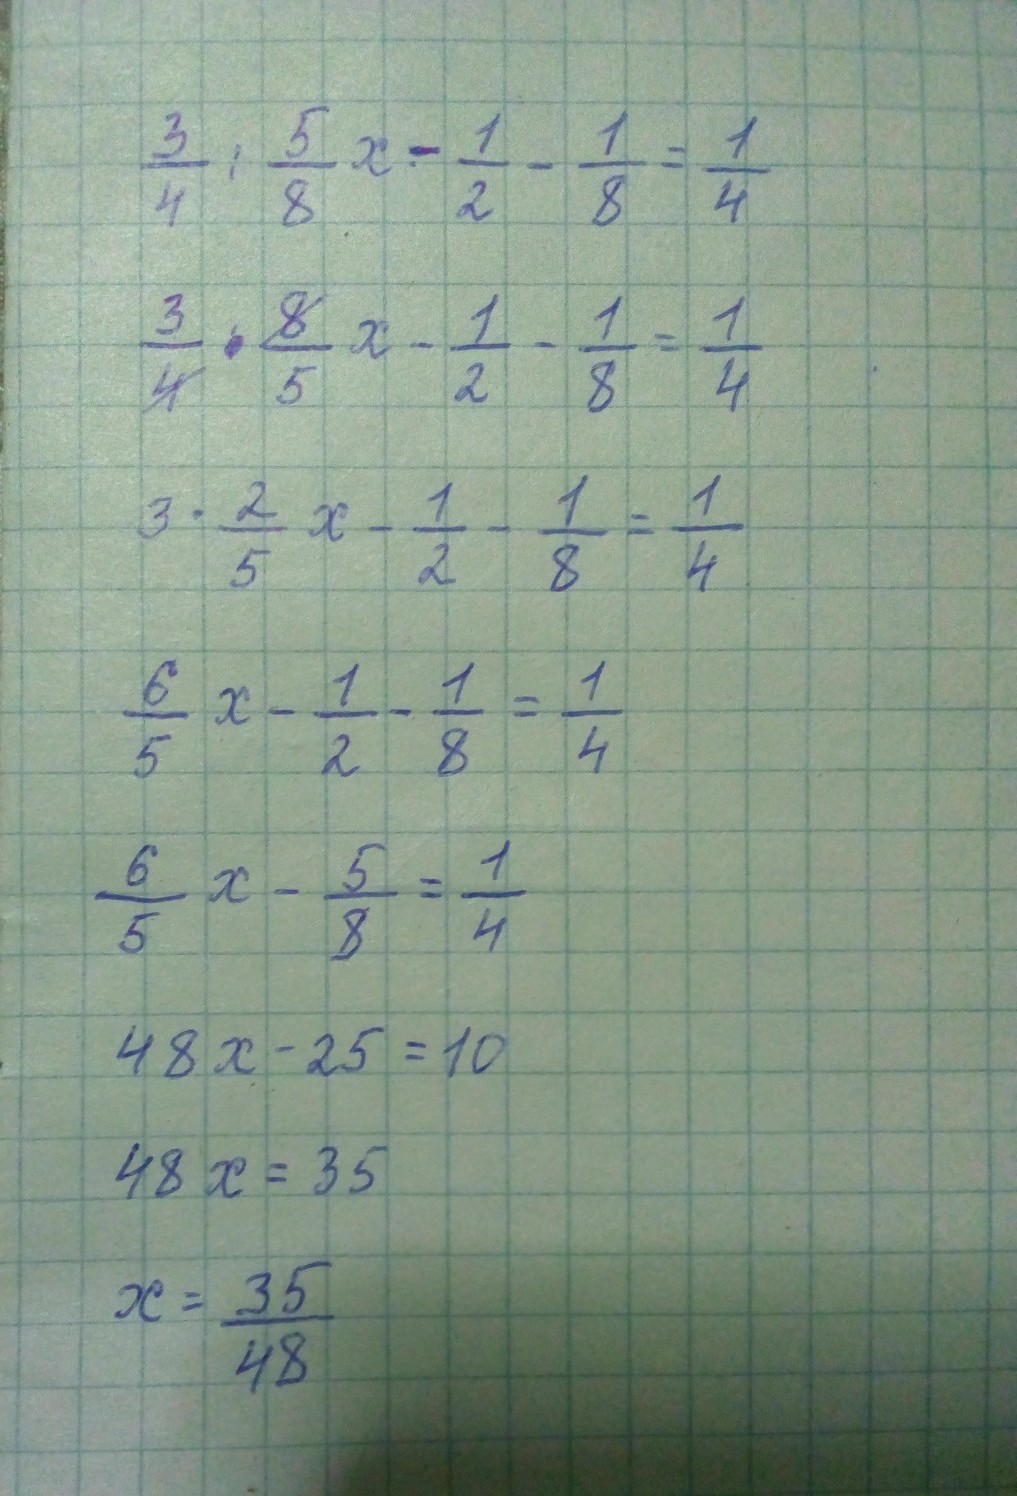 3/4 : 5/8 x - 1/2 - 1/8 = 1/4
3/4 · 8/5 x - 1/2 - 1/8 = 1/4
3 · 2/5 x - 1/2 - 1/8 = 1/4
6/5 x - 1/2 - 1/8 = 1/4
6/5 x - 5/8 = 1/4
48x - 25 = 10
48x = 35
x = 35/48